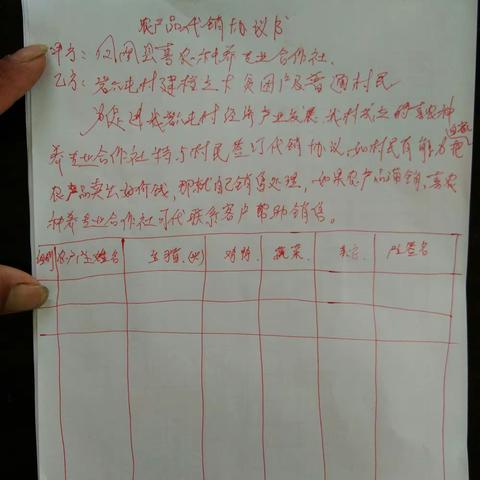 农产品代销协议书
甲方:凤凰县喜农种养专业合作社
乙方:岩屯村建档立卡贫困户及普通村民
为促进我岩屯村经济产业发展,我村成立的喜农种
养专业合作社特与村民签订代销协议,如村民有能力把
农产品卖出好价钱,那就自己销售处理,如果农产品滞销,喜农
种养专业合作社可代联系客户帮助销售。
组别 农户姓名 生猪(头) 鸡鸭 蔬菜 签名